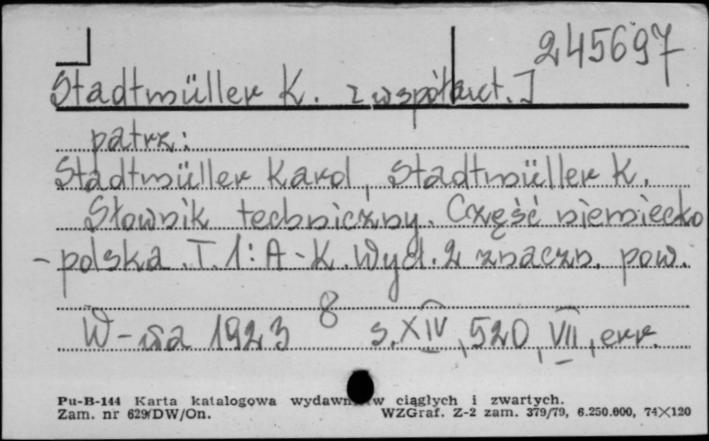 245697
Stadtmüller K. [współaut.]
patrz:
Stadtmüller Karol, Stadtmüller K.
Słownik techniczny. Część niemiecko
-polska. T. 1: A-K. Wyd. 2 znaczn. pow.
W-wa 1923 8 s. XIV, 520, VII, err.
Pu-B-144 Karta katalogowa wydawn w ciągłych i zwartych.
Zam. nr 629/DW/On. WZGraf. Z-2 zam. 379/79, 6.250.000, 74×120